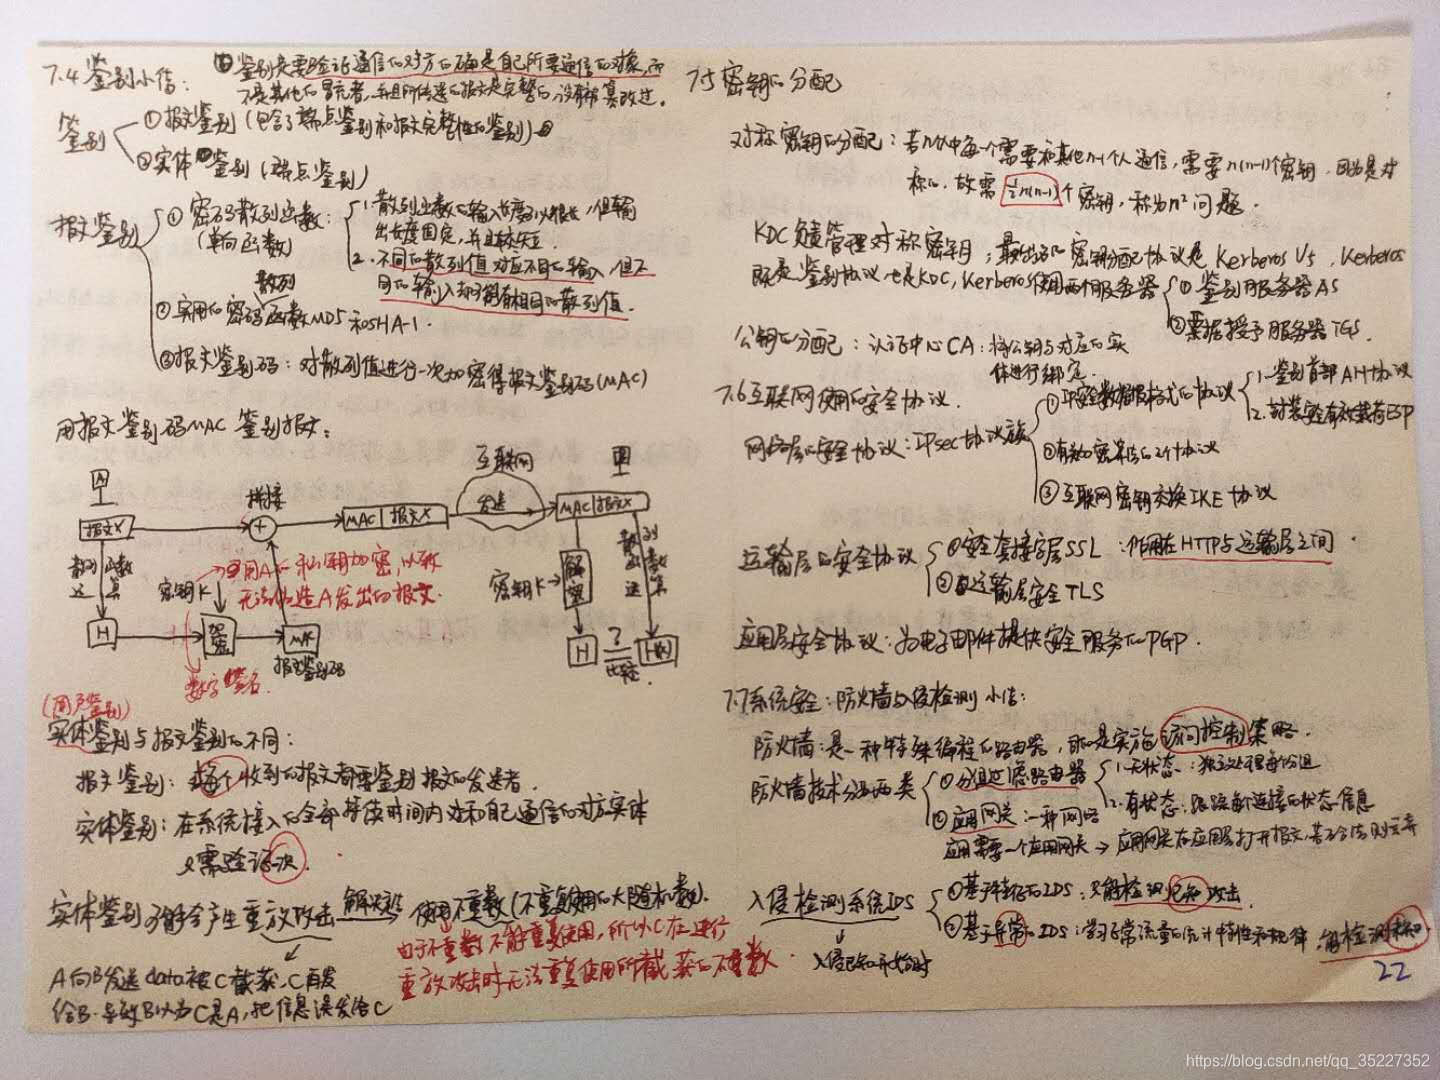 7.4 鉴别小结:
①鉴别是要验证通信的对方的确是自己所要通信的对象,而
不是其他的冒充者,并且所传送的报文是完整的,没有被篡改过。
鉴别
①报文鉴别(包含了端点鉴别和报文完整性的鉴别)
②实体鉴别(端点鉴别)
报文鉴别
①密码散列函数:
(单向函数)
1.散列函数的输入长度可以很长,但输
出长度固定,并且较短.
2.不同的散列值对应不同的输入,但不
同的输入却可能有相同的散列值.
散列
②实用的密码函数MD5和SHA-1.
③报文鉴别码:对散列值进行一次加密得报文鉴别码(MAC)
用报文鉴别码MAC鉴别报文:
A
报文X
拼接
+
MAC 报文X
互联网
发送
MAC 报文X
散列函数运算
密钥K
用A的私钥加密,以致
无法伪造A发出的报文.
H
加密
MAC
报文鉴别码
数字签名.
密钥K
解密
散列函数运算
H
?
比较.
H(X)
(用户鉴别)
实体鉴别与报文鉴别的不同:
报文鉴别:每个收到的报文都要鉴别报文的发送者.
实体鉴别:在系统接入的全部持续时间内对和自己通信的对方实体
只需验证一次.
实体鉴别可能会产生重放攻击 解决 使用不重数(不重复使用的大随机数).
由于不重数不能重复使用,所以C在进行
重放攻击时无法重复使用所截获的不重数.
A向B发送data被C截获,C再发
给B.导致B以为C是A,把信息误发给C
7.5密钥的分配
对称密钥的分配:若n人中每一个需要和其他n-1个人通信,需要n(n-1)个密钥.因为是对
称的,故需½n(n-1)个密钥,称为n²问题.
KDC负责管理对称密钥;最出名的密钥分配协议是Kerberos V5,Kerberos
既是鉴别协议,也是KDC,Kerberos使用两个服务器
①鉴别服务器AS
②票据授予服务器TGS.
公钥的分配:认证中心CA:将公钥与对应的实
体进行绑定.
7.6互联网使用的安全协议.
网络层的安全协议:IPsec协议族
①IP安全数据报格式的协议
1.鉴别首部AH协议
2.封装安全有效载荷ESP
②有关加密算法的2个协议
③互联网密钥交换IKE协议
运输层的安全协议
①安全套接字层SSL :作用在HTTP与运输层之间.
②运输层安全TLS
应用层安全协议:为电子邮件提供安全服务的PGP.
7.7系统安全:防火墙与入侵检测小结:
防火墙:是一种特殊编程的路由器,目的是实施访问控制策略.
防火墙技术分为两类
①分组过滤路由器
1.无状态:独立处理每个分组
2.有状态:跟踪每个连接的状态信息
②应用网关:一种网络
应用需要一个应用网关→应用网关在应用层打开报文,若不合法则丢弃
入侵检测系统IDS
①基于特征的IDS:只能检测已知攻击.
②基于异常的IDS:学习正常流量的统计特性和规律,能检测未知.
入侵已知开始时
22
https://blog.csdn.net/qq_35227352